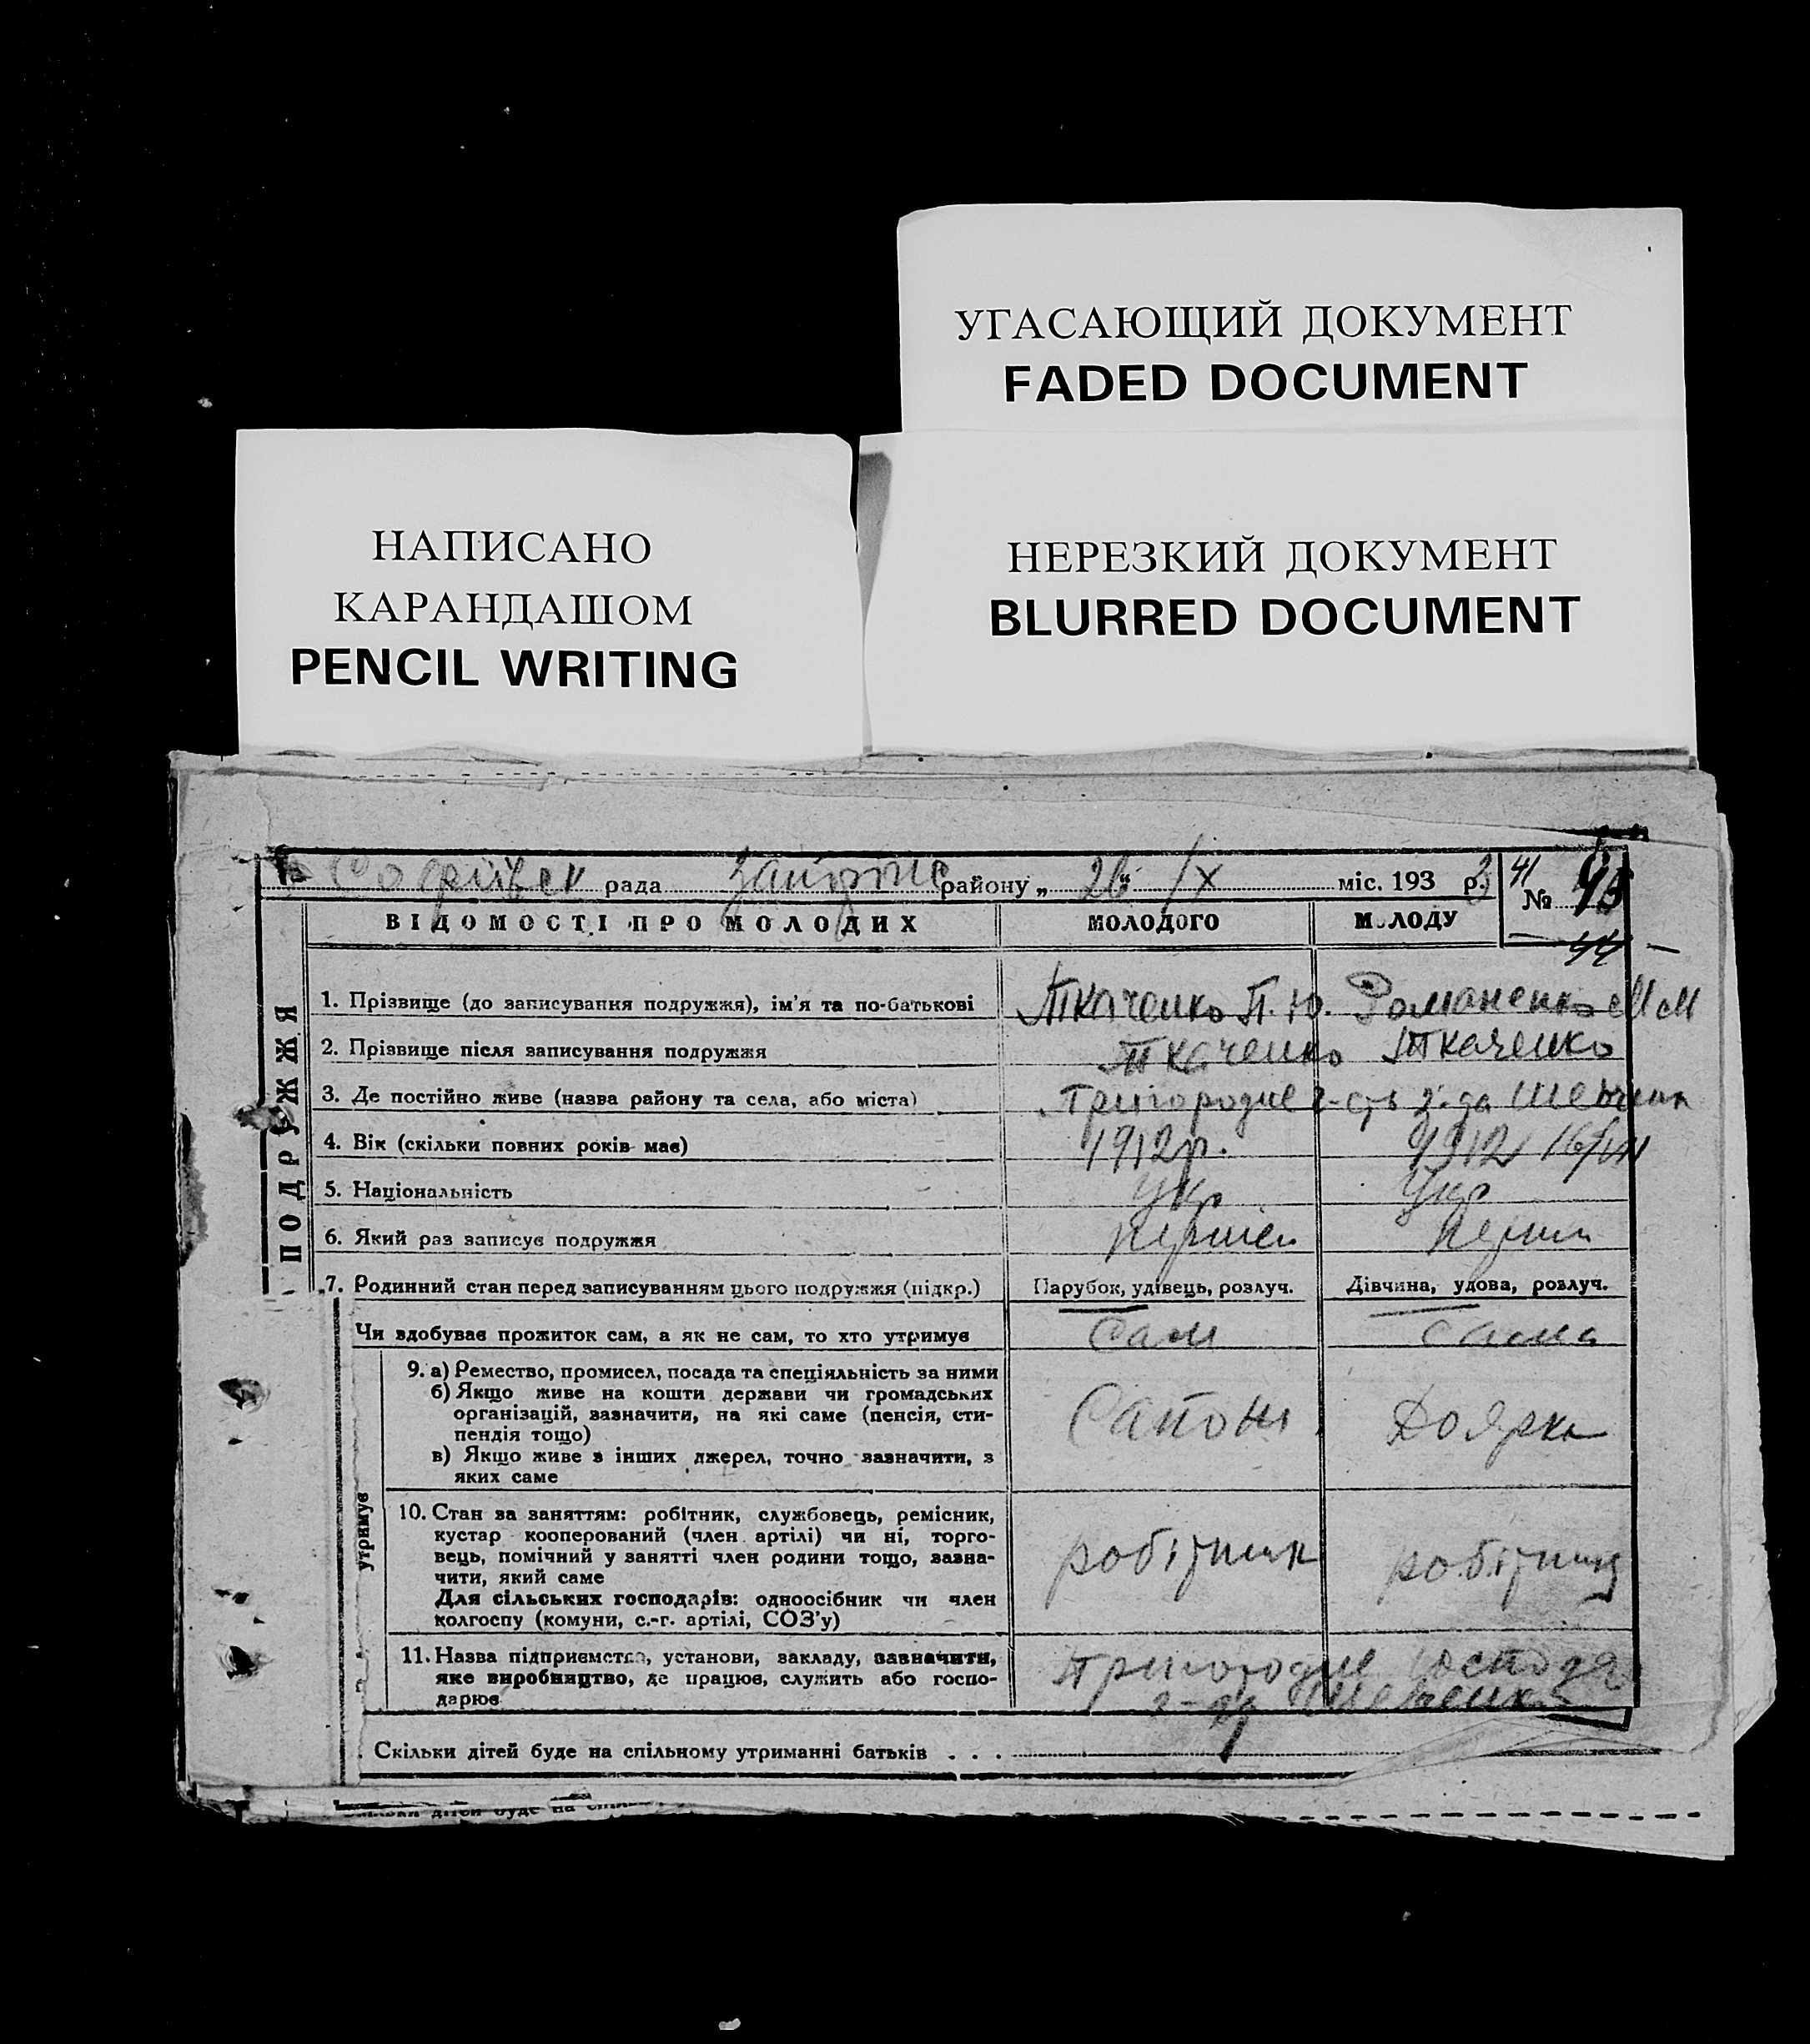 УГАСАЮЩИЙ ДОКУМЕНТ
FADED DOCUMENT
НАПИСАНО
КАРАНДАШОМ
PENCIL WRITING
НЕРЕЗКИЙ ДОКУМЕНТ
BLURRED DOCUMENT
Софіївск рада району „ 26 “ IX міс. 193 3 р. 41 № 45
44
ВІДОМОСТІ ПРО МОЛОДИХ МОЛОДОГО МОЛОДУ
ПОДРУЖЖЯ
1. Прізвище (до записування подружжя), ім'я та по-батькові Ткаченко П. Ю. Романенко М М
2. Прізвище після записування подружжя Ткаченко Ткаченко
3. Де постійно живе (назва району та села, або міста) Пригородне г-сть з-да
4. Вік (скільки повних років має) 1912 р. 1912 16/VII
5. Національність Укр Укр
6. Який раз записує подружжя
7. Родинний стан перед записуванням цього подружжя (підкр.) Парубок, удівець, розлуч. Дівчина, удова, розлуч.
Чи здобуває прожиток сам, а як не сам, то хто утримує Сам сама
9. а) Ремество, промисел, посада та спеціяльність за ними
б) Якщо живе на кошти держави чи громадських
організацій, зазначити, на які саме (пенсія, сти-
пендія тощо) Сапож Доярка
в) Якщо живе з інших джерел, точно зазначити, з
яких саме
утримує
10. Стан за заняттям: робітник, службовець, ремісник,
кустар кооперований (член артілі) чи ні, торго-
вець, помічний у занятті член родини тощо, зазна-
чити, який саме робітник робітниця
Для сільських господарів: одноосібник чи член
колгоспу (комуни, с.-г. артілі, СОЗ'у)
11. Назва підприємства, установи, закладу, зазначити,
яке виробництво, де працює, служить або госпо-
дарює Пригородне господа
Скільки дітей буде на спільному утриманні батьків . . .